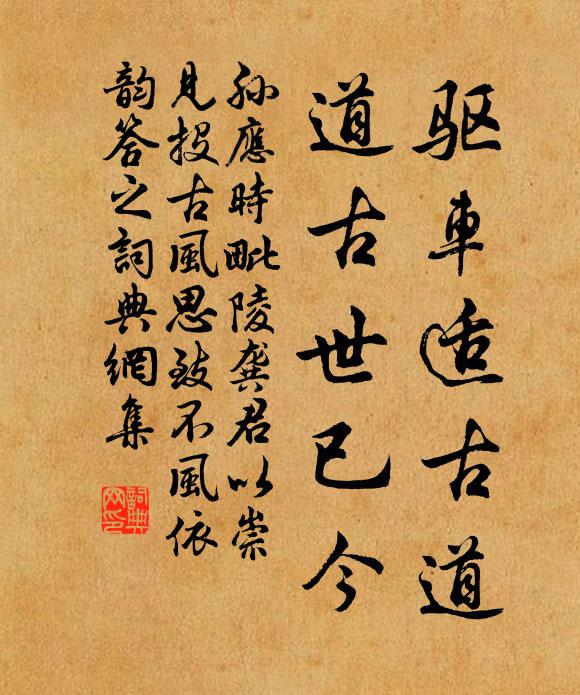 驱車适古道
道古世已今
孙應時毗陵龔君以崇
見投古風思致不風依
韵答之詞典網集
詞典網印